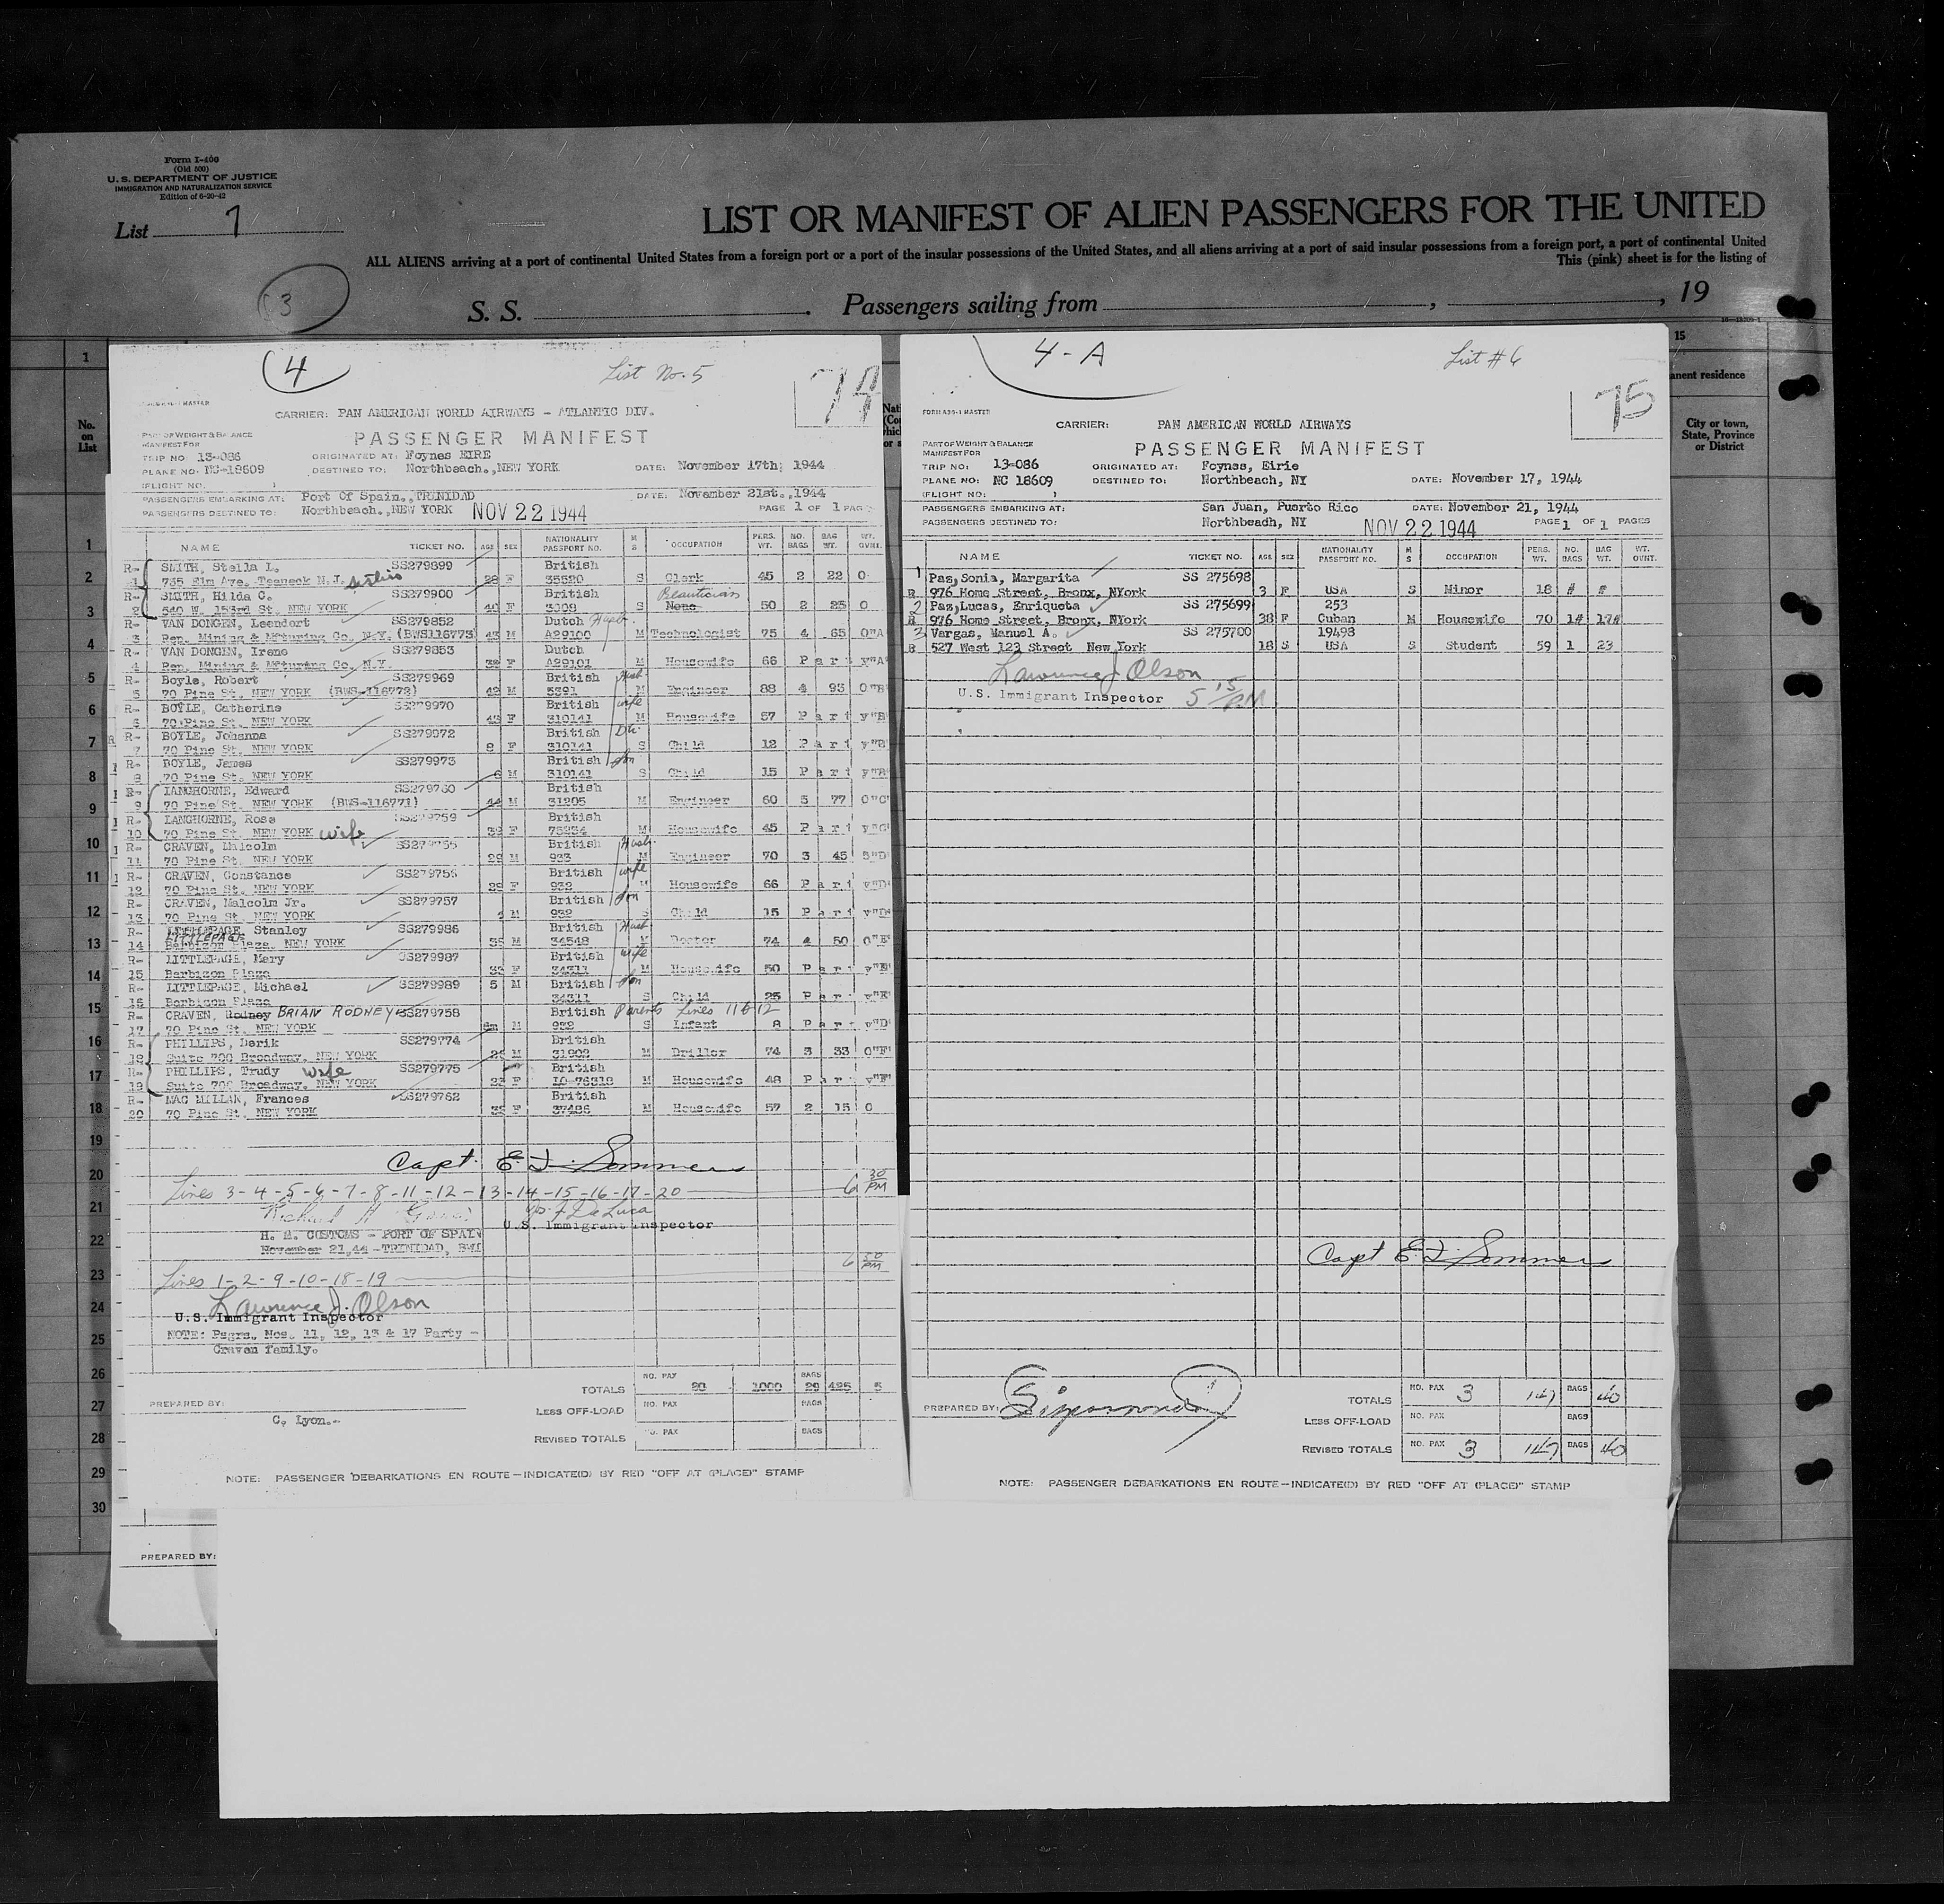 Form I-400
(Old 500)
U. S. DEPARTMENT OF JUSTICE
IMMIGRATION AND NATURALIZATION SERVICE
Edition of 6-20-42
List 7
LIST OR MANIFEST OF ALIEN PASSENGERS FOR THE UNITED
ALL ALIENS arriving at a port of continental United States from a foreign port or a port of the insular possessions of the United States, and all aliens arriving at a port of said insular possessions from a foreign port, a port of continental United
This (pink) sheet is for the listing of
3
S. S. . Passengers sailing from , , 19
4
List No. 5
74
CARRIER: PAN AMERICAN WORLD AIRWAYS - ATLANTIC DIV.
PART OF WEIGHT & BALANCE
MANIFEST FOR
PASSENGER MANIFEST
TRIP NO. 13-086 ORIGINATED AT: Foynes EIRE
PLANE NO. NC-18609 DESTINED TO: Northbeach., NEW YORK DATE: November 17th, 1944
(FLIGHT NO. )
PASSENGERS EMBARKING AT: Port Of Spain., TRINIDAD DATE: November 21st., 1944
PASSENGERS DESTINED TO: Northbeach., NEW YORK NOV 22 1944 PAGE 1 OF 1 PAGE
NAME TICKET NO. AGE SEX NATIONALITY PASSPORT NO. M S OCCUPATION PERS. WT. NO. BAGS BAG WT. WT. OVNT.
R- SMITH, Stella L. SS279899 British
1 735 Elm Ave. Teaneck N.J. 28 F 35520 S Clerk 45 2 22 0
R- SMITH, Hilda C. SS279900 British Beautician
2 540 W. 153rd St. NEW YORK 40 F 3098 S None 50 2 25 0
R- VAN DONGEN, Leendert SS279852 Dutch Husb.
3 Rep. Mining & M'turing Co. N.Y. (BWS116773) 43 M A29100 M Technologist 75 4 65 0"A"
R- VAN DONGEN, Irene SS279853 Dutch
4 Rep. Mining & M'turing Co. N.Y. F A29101 M Housewife 66 P a r t y"A"
R- Boyle, Robert SS279969 British Husb.
5 70 Pine St. NEW YORK (BWS-116772) 42 M 5391 M Engineer 88 4 93 0"B"
R- BOYLE, Catherine SS279970 British wife
6 70 Pine St. NEW YORK 43 F 310141 M Housewife 57 P a r t y"B"
R- BOYLE, Johanna SS279972 British
7 70 Pine St. NEW YORK 9 F 310141 S Child 12 P a r t y"B"
R- BOYLE, James SS279973 British Son
8 70 Pine St. NEW YORK 6 M 310141 S Child 15 P a r t y"B"
R- LANGHORNE, Edward SS279760 British
9 70 Pine St. NEW YORK (BWS-116771) 44 M 31205 M Engineer 60 5 77 0"C"
R- LANGHORNE, Rose SS279759 British
10 70 Pine St. NEW YORK wife 39 F 75234 M Housewife 45 P a r t y"C"
R- CRAVEN, Malcolm SS279755 British Husb.
11 70 Pine St. NEW YORK 29 M 933 M Engineer 70 3 45 5"D"
R- CRAVEN, Constance SS279756 British wife
12 70 Pine St. NEW YORK 29 F 932 M Housewife 66 P a r t y"D"
R- CRAVEN, Malcolm Jr. SS279757 British Son
13 70 Pine St. NEW YORK M 932 S Child 15 P a r t y"D"
R- LITTLEPAGE, Stanley SS279986 British Husb.
14 Barbizon Plaza, NEW YORK 35 M 34548 M Doctor 74 4 50 0"E"
R- LITTLEPAGE, Mary SS279987 British wife
15 Barbizon Plaza F 34311 M Housewife 50 P a r t y"E"
R- LITTLEPAGE, Michael SS279989 5 M British Son
16 Barbizon Plaza 34311 S Child 25 P a r t y"E"
R- CRAVEN, Rodney BRIAN RODNEY SS279758 British Parents Lines 11 & 12
17 70 Pine St. NEW YORK 6m M 932 S Infant 8 P a r t y"D"
R- PHILLIPS, Derik SS279774 British
18 Suite 700 Broadway, NEW YORK M 31902 M Driller 74 3 33 0"F"
R- PHILLIPS, Trudy wife SS279775 British
19 Suite 700 Broadway, NEW YORK 23 F IO-76318 M Housewife 48 P a r t y"F"
R- MAC MILLAN, Frances SS279762 British
20 70 Pine St. NEW YORK 35 F 37486 M Housewife 57 2 15 0
Capt. E. I. Sommers
Lines 3-4-5-6-7-8-11-12-13-14-15-16-17-20 6 30 PM
De Luca
U.S. Immigrant Inspector
H. M. CUSTOMS - PORT OF SPAIN
November 21,44 - TRINIDAD, BWI
Lines 1-2-9-10-18-19 6 30 PM
Lawrence J. Olson
U.S. Immigrant Inspector
NOTE: Psgrs. Nos. 11, 12, 13 & 17 Party -
Craven family.
TOTALS NO. PAX 20 1000 BAGS 29 425 5
PREPARED BY: C. Lyon.-
LESS OFF-LOAD NO. PAX BAGS
REVISED TOTALS NO. PAX BAGS
NOTE: PASSENGER DEBARKATIONS EN ROUTE—INDICATE(D) BY RED "OFF AT (PLACE)" STAMP
PREPARED BY:
4-A
List # 6
75
FORM A90-1 MASTER
CARRIER: PAN AMERICAN WORLD AIRWAYS
PART OF WEIGHT & BALANCE
MANIFEST FOR
PASSENGER MANIFEST
TRIP NO: 13-086 ORIGINATED AT: Foynes, Eirie
PLANE NO: NC 18609 DESTINED TO: Northbeach, NY DATE: November 17, 1944
(FLIGHT NO: )
PASSENGERS EMBARKING AT: San Juan, Puerto Rico DATE: November 21, 1944
PASSENGERS DESTINED TO: Northbeadh, NY NOV 22 1944 PAGE 1 OF 1 PAGES
NAME TICKET NO. AGE SEX NATIONALITY PASSPORT NO. M S OCCUPATION PERS. WT. NO. BAGS BAG WT. WT. OVNT.
1 Paz, Sonia, Margarita SS 275698
R 976 Home Street, Bronx, NYork 3 F USA S Minor 18 # #
2 Paz, Lucas, Enriqueta SS 275699 253
R 976 Home Street, Bronx, NYork 38 F Cuban M Housewife 70 1# 17#
3 Vargas, Manuel A. SS 275700 19498
R 527 West 123 Street New York 18 S USA S Student 59 1 23
Lawrence J Olson
U.S. Immigrant Inspector 5 15 PM
Capt E. I. Sommers
PREPARED BY:
TOTALS NO. PAX 3 147 BAGS 40
LESS OFF-LOAD NO. PAX BAGS
REVISED TOTALS NO. PAX 3 147 BAGS 40
NOTE: PASSENGER DEBARKATIONS EN ROUTE—INDICATE(D) BY RED "OFF AT (PLACE)" STAMP
15
anent residence
City or town,
State, Province
or District
No.
on
List
1
1
2
3
4
5
6
7
8
9
10
11
12
13
14
15
16
17
18
19
20
21
22
23
24
25
26
27
28
29
30